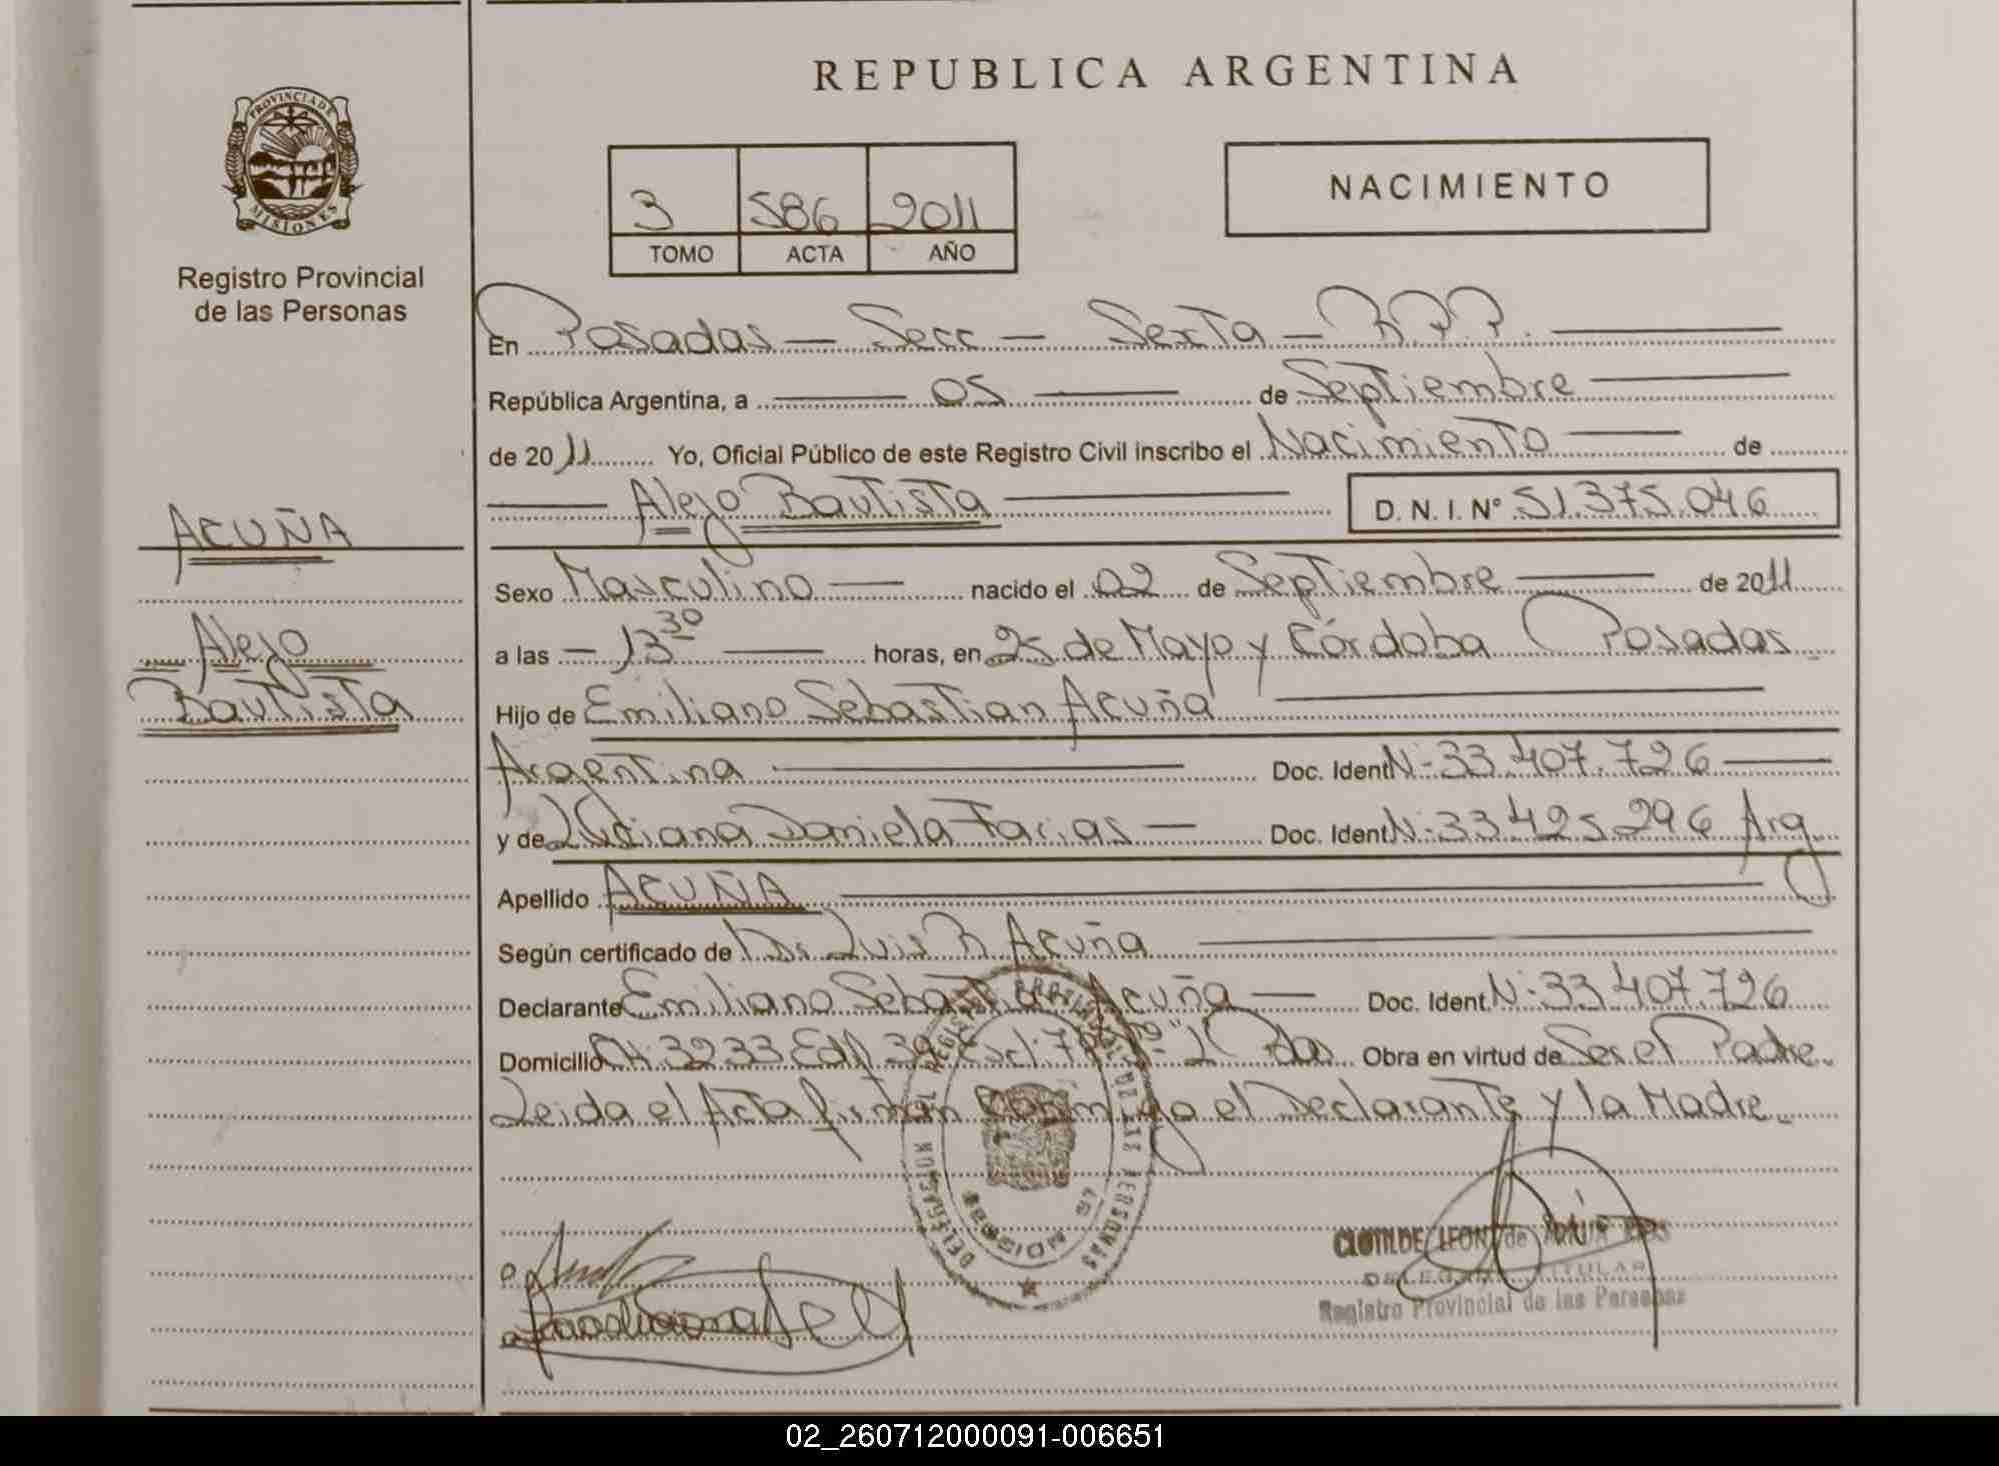 REPUBLICA ARGENTINA
PROVINCIA DE
MISIONES
Registro Provincial
de las Personas
3 586 2011
TOMO ACTA AÑO
NACIMIENTO
En Posadas — Secc — Sexta — R.P.P.
República Argentina, a 05 de Septiembre
de 2011 Yo, Oficial Público de este Registro Civil inscribo el Nacimiento de
Alejo Bautista D. N. I. Nº 51.375.046
ACUÑA
Alejo
Bautista
Sexo Masculino nacido el 02 de Septiembre de 2011
a las — 13 30 horas, en 25 de Mayo y Córdoba Posadas
Hijo de Emiliano Sebastian Acuña
Argentina Doc. Ident N: 33.407.726
y de Luciana Daniela Farias — Doc. Ident N: 33.425.296 Arg
Apellido ACUÑA
Según certificado de Dr. Luis R Acuña
Declarante Emiliano Sebastian Acuña — Doc. Ident. N: 33.407.726
Domicilio CH. 3233 Edif 39 Pdas Obra en virtud de Ser el Padre
Leida el Acta firman conmigo el Declarante y la Madre
CLOTILDE LEON de
DELEGADA TITULAR
Registro Provincial de las Personas
02_260712000091-006651